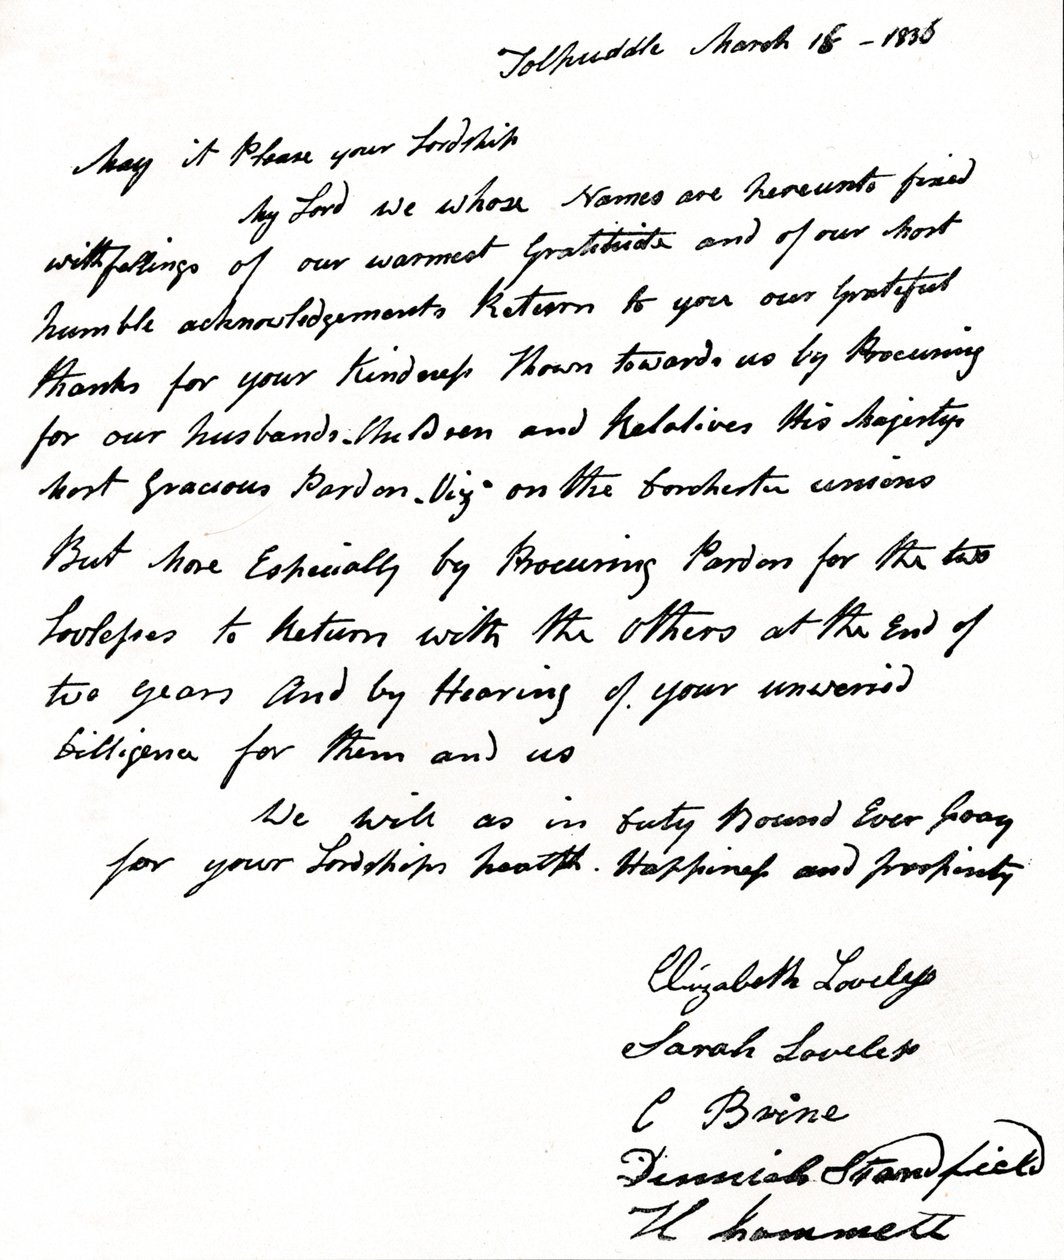 Tolpuddle March 16 - 1836
May it Please your Lordship
My Lord we whose Names are hereunto fixed
with feelings of our warmest Gratitude and of our Most
humble acknowledgements Return to you our Grateful
thanks for your Kindness Shown towards us by Procuring
for our husbands Children and Relatives His Majestys
Most Gracious Pardon Viz on the Dorchester unions
But More Especially by Procuring Pardon for the two
Lovlesses to Return with the Others at the End of
two years And by Hearing of your unweried
Dilligence for them and us
We will as in Duty Bound Ever Pray
for your Lordships health. Happiness and prosperity
Elizabeth Loveless
Sarah Loveless
C Brine
Dinniah Standfield
H Hammett